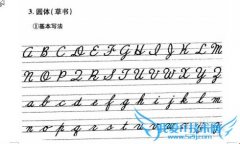 3. 圆体(草书)
①基本写法
A B C D E F G H I J K L M
N O P Q R S T U V W X Y Z
a b c d e f g h i j k l m
n o p q r s t u v w x y z